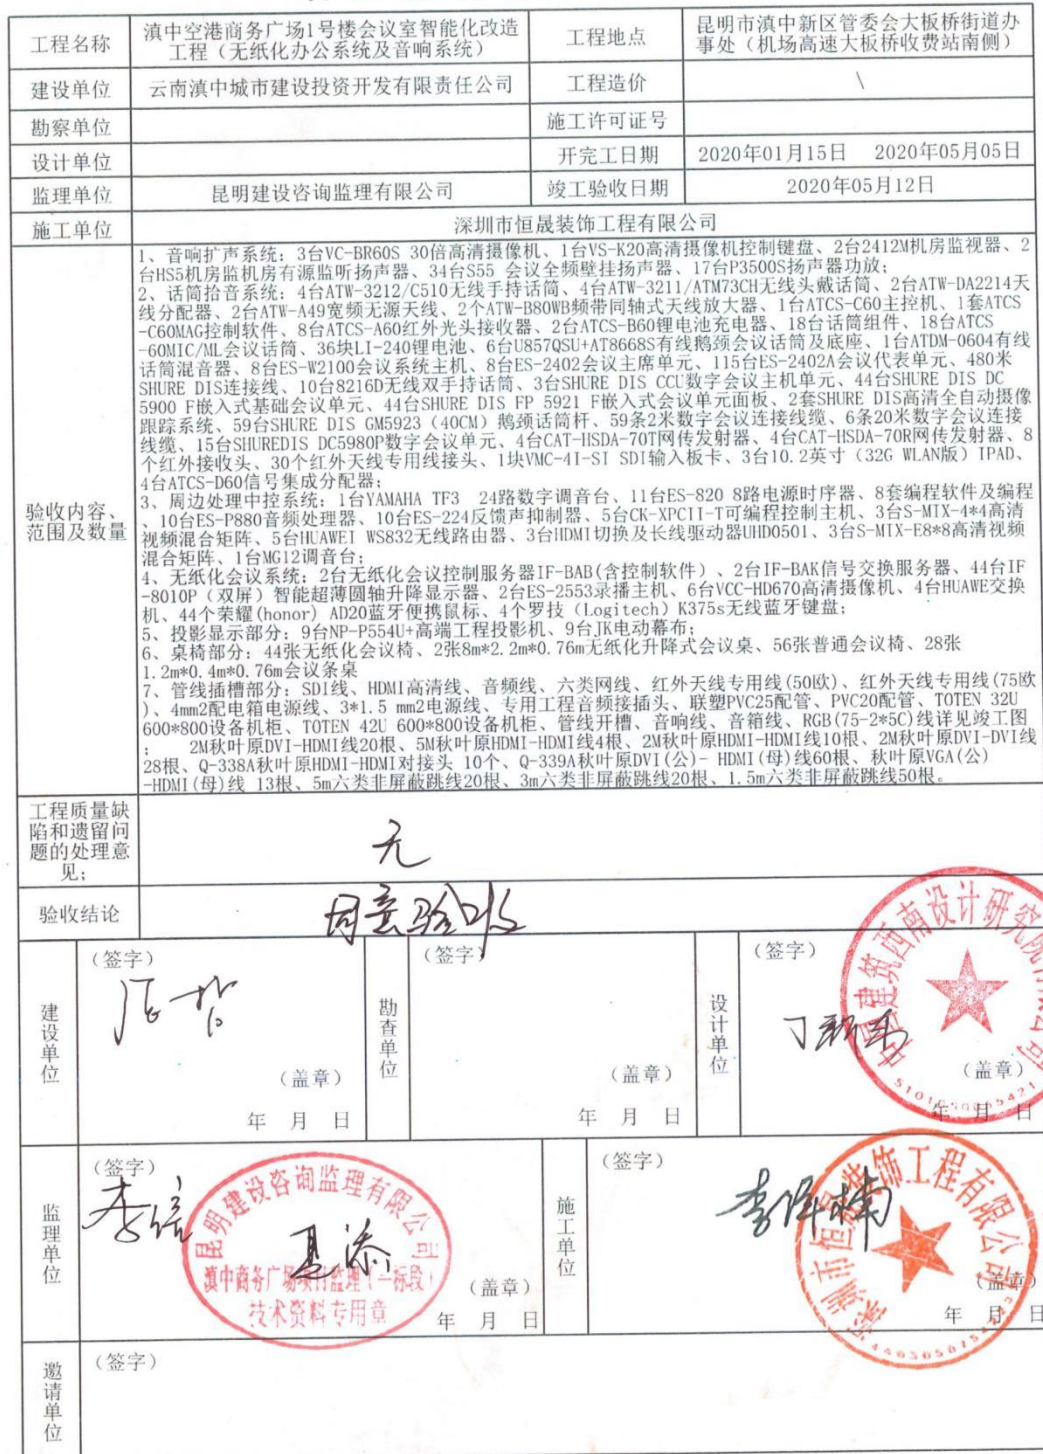 工程名称
滇中空港商务广场1号楼会议室智能化改造
工程（无纸化办公系统及音响系统）
工程地点
昆明市滇中新区管委会大板桥街道办
事处（机场高速大板桥收费站南侧）
建设单位
云南滇中城市建设投资开发有限责任公司
工程造价
\
勘察单位
施工许可证号
设计单位
开完工日期
2020年01月15日 2020年05月05日
监理单位
昆明建设咨询监理有限公司
竣工验收日期
2020年05月12日
施工单位
深圳市恒晟装饰工程有限公司
验收内容、
范围及数量
1、音响扩声系统：3台VC-BR60S 30倍高清摄像机、1台VS-K20高清摄像机控制键盘、2台2412M机房监视器、2
台HS5机房监机房有源监听扬声器、34台S55 会议全频壁挂扬声器、17台P3500S扬声器功放；
2、话筒拾音系统：4台ATW-3212/C510无线手持话筒、4台ATW-3211/ATM73CH无线头戴话筒、2台ATW-DA2214天
线分配器、2台ATW-A49宽频无源天线、2个ATW-B80WB频带同轴式天线放大器、1台ATCS-C60主控机、1套ATCS
-C60MAG控制软件、8台ATCS-A60红外光头接收器、2台ATCS-B60锂电池充电器、18台话筒组件、18台ATCS
-60MIC/ML会议话筒、36块LI-240锂电池、6台U857QSU+AT8668S有线鹅颈会议话筒及底座、1台ATDM-0604有线
话筒混音器、8台ES-W2100会议系统主机、8台ES-2402会议主席单元、115台ES-2402A会议代表单元、480米
SHURE DIS连接线、10台8216D无线双手持话筒、3台SHURE DIS CCU数字会议主机单元、44台SHURE DIS DC
5900 F嵌入式基础会议单元、44台SHURE DIS FP 5921 F嵌入式会议单元面板、2套SHURE DIS高清全自动摄像
跟踪系统、59台SHURE DIS GM5923（40CM）鹅颈话筒杆、59条2米数字会议连接线缆、6条20米数字会议连接
线缆、15台SHUREDIS DC5980P数字会议单元、4台CAT-HSDA-70T网传发射器、4台CAT-HSDA-70R网传发射器、8
个红外接收头、30个红外天线专用线接头、1块VMC-4I-SI SDI输入板卡、3台10.2英寸（32G WLAN版）IPAD、
4台ATCS-D60信号集成分配器；
3、周边处理中控系统：1台YAMAHA TF3 24路数字调音台、11台ES-820 8路电源时序器、8套编程软件及编程
、10台ES-P880音频处理器、10台ES-224反馈声抑制器、5台CK-XPCII-T可编程控制主机、3台S-MIX-4*4高清
视频混合矩阵、5台HUAWEI WS832无线路由器、3台HDMI切换及长线驱动器UHD0501、3台S-MIX-E8*8高清视频
混合矩阵、1台MG12调音台；
4、无纸化会议系统：2台无纸化会议控制服务器IF-BAB(含控制软件）、2台IF-BAK信号交换服务器、44台IF
-8010P（双屏）智能超薄圆轴升降显示器、2台ES-2553录播主机、6台VCC-HD670高清摄像机、4台HUAWE交换
机、44个荣耀(honor) AD20蓝牙便携鼠标、4个罗技（Logitech）K375s无线蓝牙键盘；
5、投影显示部分：9台NP-P554U+高端工程投影机、9台JK电动幕布；
6、桌椅部分：44张无纸化会议椅、2张8m*2.2m*0.76m无纸化升降式会议桌、56张普通会议椅、28张
1.2m*0.4m*0.76m会议条桌
7、管线插槽部分：SDI线、HDMI高清线、音频线、六类网线、红外天线专用线(50欧)、红外天线专用线(75欧
)、4mm2配电箱电源线、3*1.5 mm2电源线、专用工程音频接插头、联塑PVC25配管、PVC20配管、TOTEN 32U
600*800设备机柜、TOTEN 42U 600*800设备机柜、管线开槽、音响线、音箱线、RGB(75-2*5C)线详见竣工图
； 2M秋叶原DVI-HDMI线20根、5M秋叶原HDMI-HDMI线4根、2M秋叶原HDMI-HDMI线10根、2M秋叶原DVI-DVI线
28根、Q-338A秋叶原HDMI-HDMI对接头 10个、Q-339A秋叶原DVI(公)- HDMI(母)线60根、秋叶原VGA(公)
-HDMI(母)线 13根、5m六类非屏蔽跳线20根、3m六类非屏蔽跳线20根、1.5m六类非屏蔽跳线50根。
工程质量缺
陷和遗留问
题的处理意
见；
无
验收结论
同意验收
建设单位
（签字）
（盖章）
年 月 日
勘查单位
（签字）
（盖章）
年 月 日
设计单位
（签字）
丁新禹
中国建筑西南设计研究院有限公司
（盖章）
年 月 日
监理单位
（签字）
李信
昆明建设咨询监理有限公司
滇中商务广场项目监理（一标段）
技术资料专用章
（盖章）
年 月 日
施工单位
（签字）
深圳市恒晟装饰工程有限公司
（盖章）
年 月 日
邀请单位
（签字）